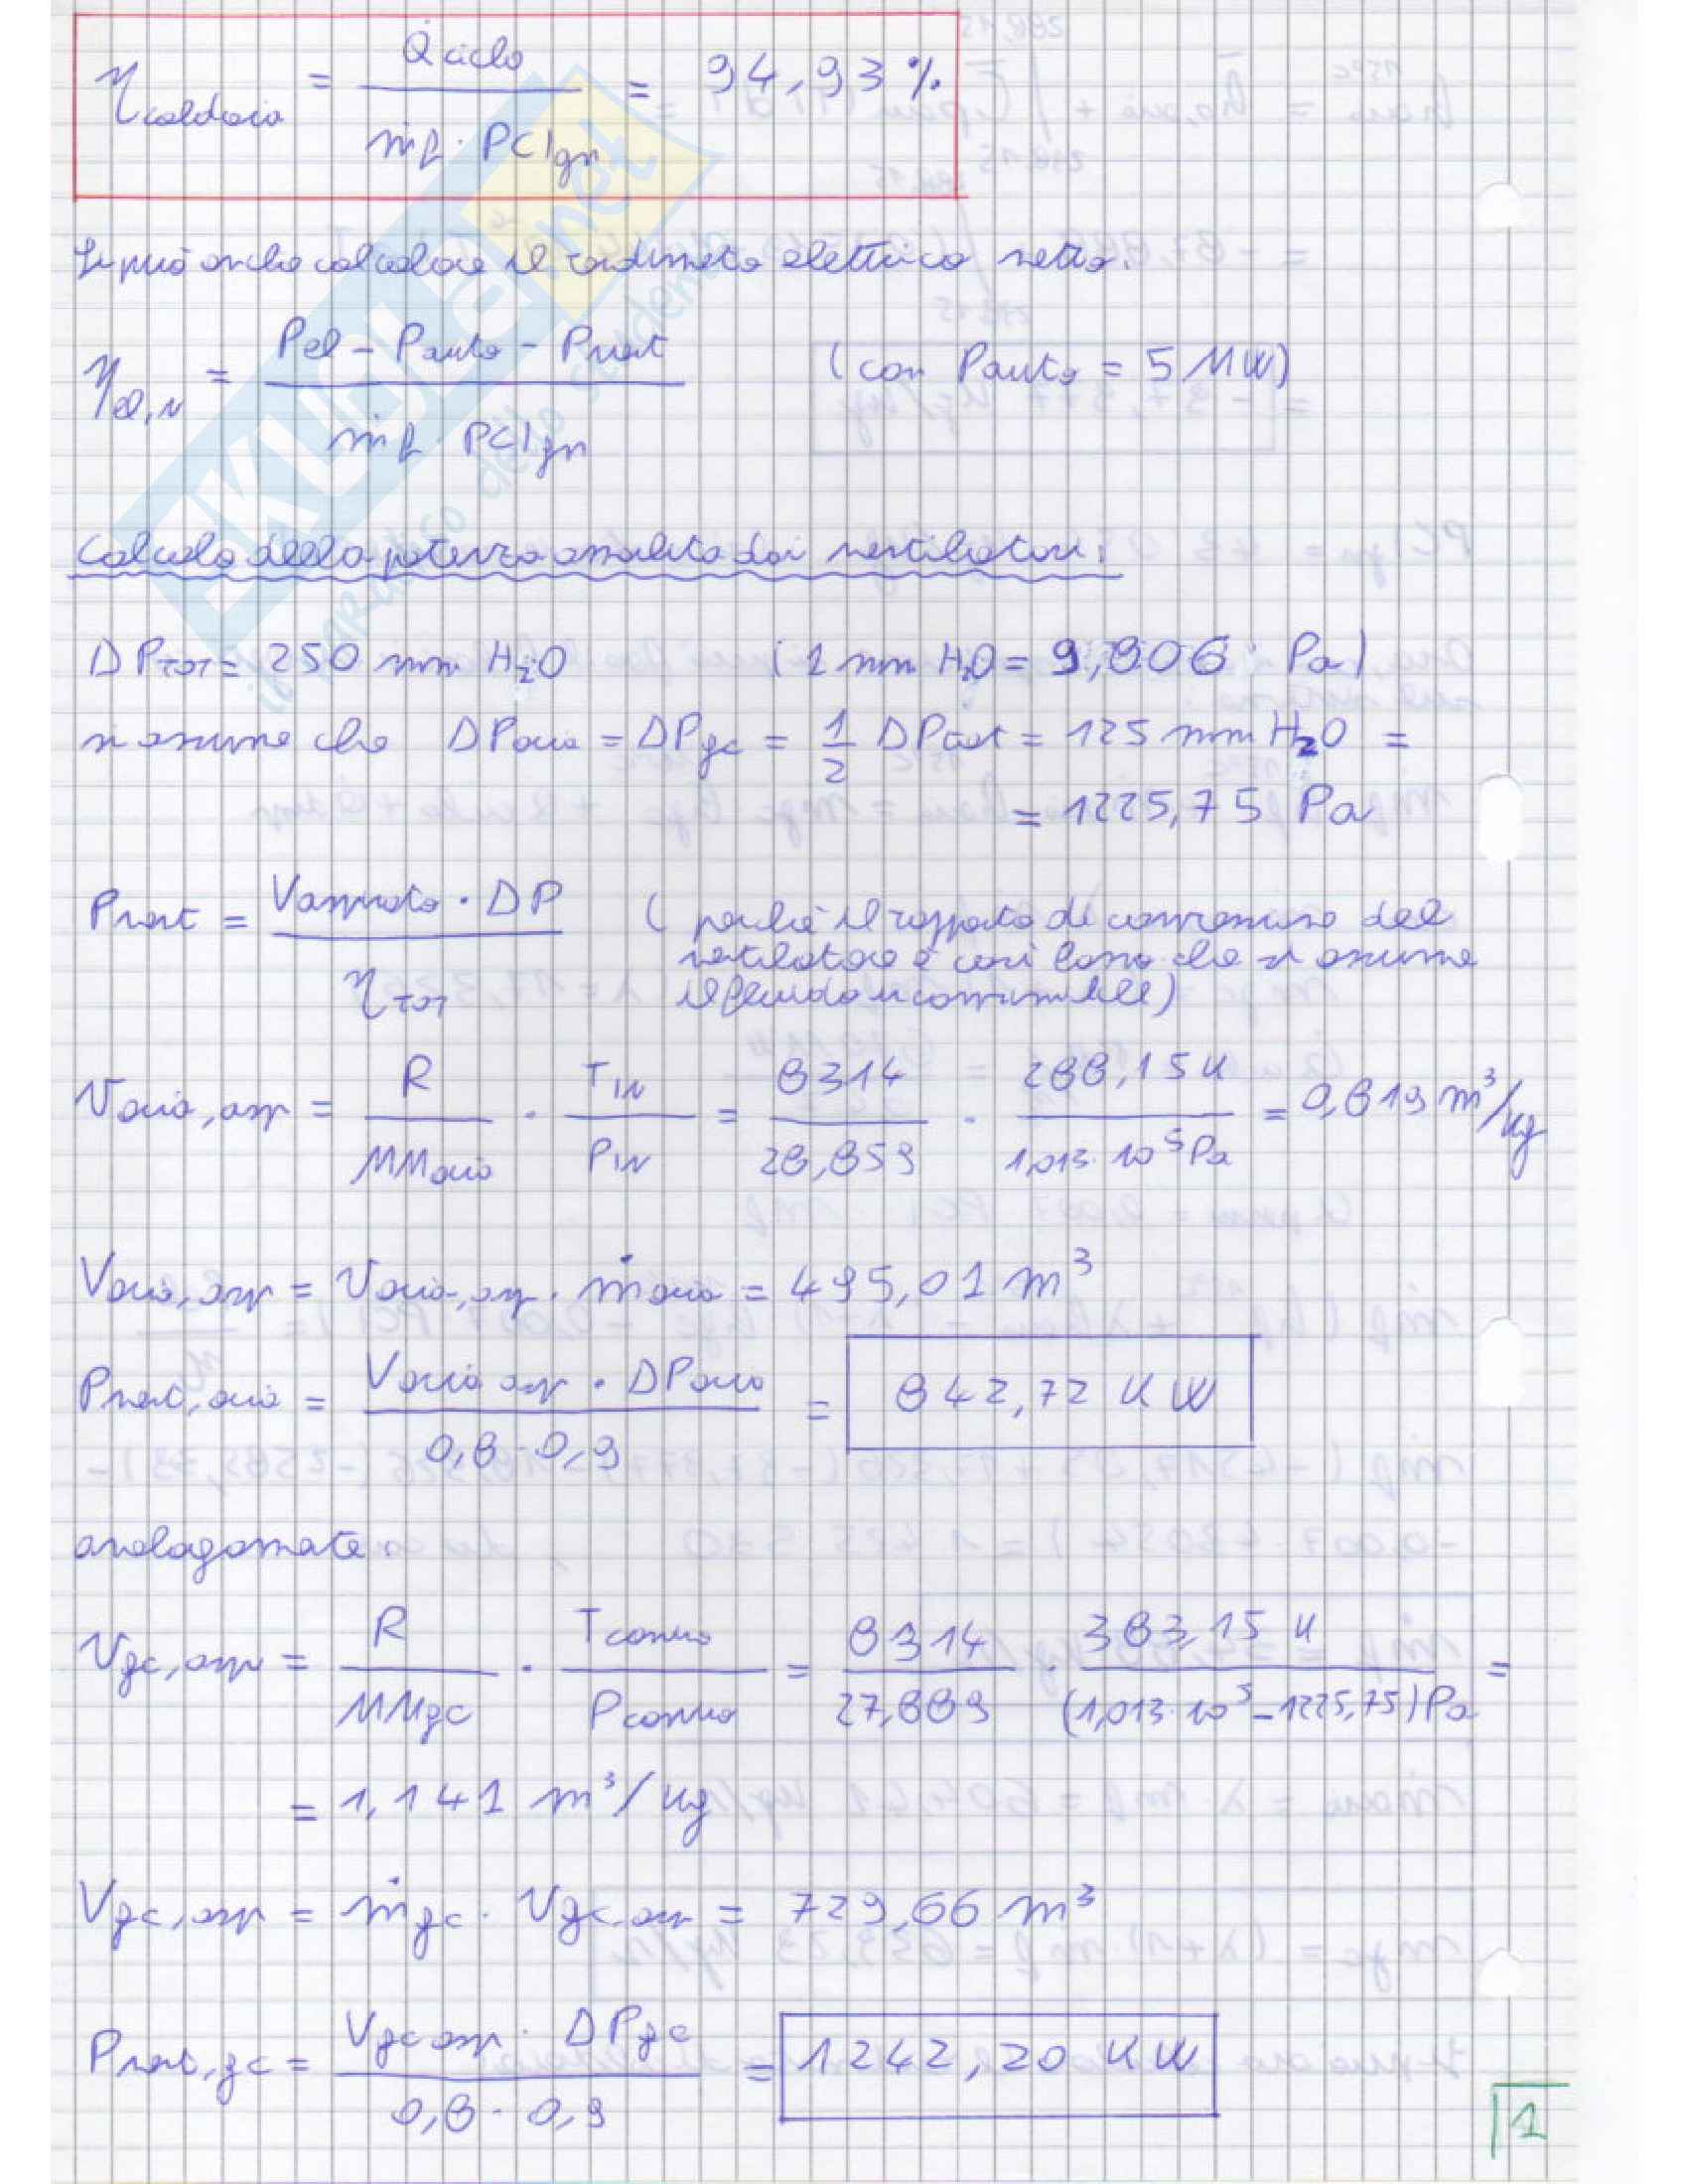 η caldaia = Q̇ciclo / ṁf · PCIgn = 94,93 %
Si può anche calcolare il rendimento elettrico netto:
ηel,n = Pel - Pauto - Pvent / ṁf · PCIgn (con Pauto = 5 MW)
Calcolo della potenza assorbita dai ventilatori:
ΔPTOT = 250 mm H2O (1 mm H2O = 9,806 Pa)
si assume che ΔParia = ΔPgc = 1/2 ΔPtot = 125 mm H2O =
= 1225,75 Pa
Pvent = Vaspirato · ΔP / ηTOT (perché il rapporto di compressione del
ventilatore è così basso che si assume
il fluido incomprimibile)
Varia,asp = R / MMaria · TIN / PIN = 8314 / 28,859 · 288,15 K / 1,013·10^5 Pa = 0,819 m³/kg
Varia,asp = Varia,asp · ṁaria = 495,01 m³
Pvent,aria = Varia asp · ΔParia / 0,8 · 0,9 = 842,72 KW
analogamente:
Vgc,asp = R / MMgc · Tcamino / Pcamino = 8314 / 27,889 · 383,15 K / (1,013·10^5 - 1225,75) Pa =
= 1,141 m³/kg
Vgc,asp = ṁgc · Vgc,asp = 729,66 m³
Pvent,gc = Vgc asp · ΔPgc / 0,8 · 0,9 = 1242,20 KW
1
SKUOLA.net